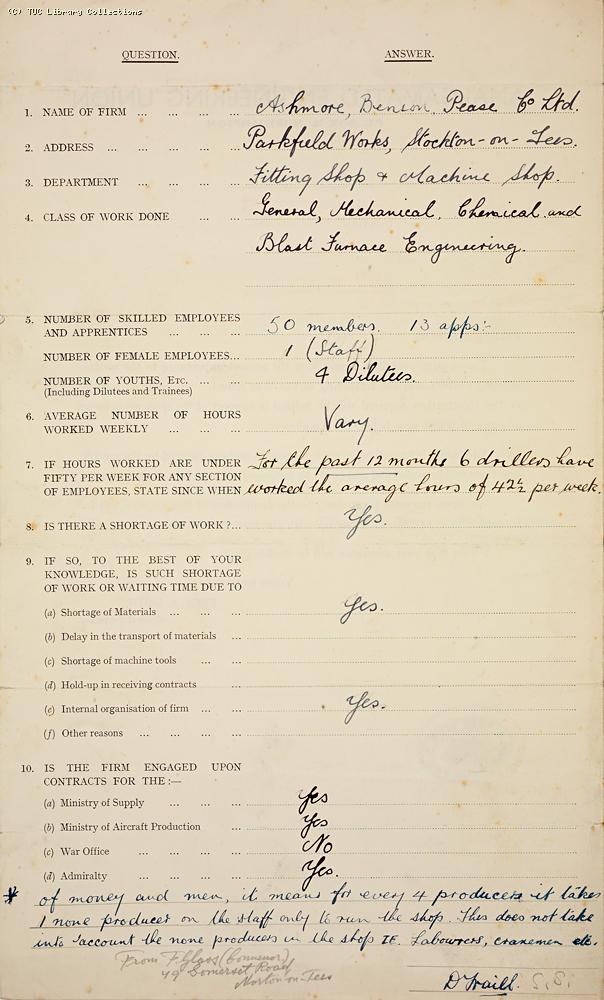 (C) TUC Library Collections
QUESTION. ANSWER.
1. NAME OF FIRM ... ... ... ... Ashmore, Benson, Pease & Co Ltd.
2. ADDRESS ... ... ... ... Parkfield Works, Stockton-on-Tees.
3. DEPARTMENT ... ... ... ... Fitting Shop & Machine Shop.
4. CLASS OF WORK DONE ... ... General, Mechanical, Chemical and
Blast Furnace Engineering.
5. NUMBER OF SKILLED EMPLOYEES
AND APPRENTICES ... ... ... 50 members. 13 apps:-
NUMBER OF FEMALE EMPLOYEES... 1 (Staff)
NUMBER OF YOUTHS, ETC. ... ... 4 Dilutees.
(Including Dilutees and Trainees)
6. AVERAGE NUMBER OF HOURS
WORKED WEEKLY ... ... ... Vary.
7. IF HOURS WORKED ARE UNDER For the past 12 months 6 drillers have
FIFTY PER WEEK FOR ANY SECTION
OF EMPLOYEES, STATE SINCE WHEN worked the average hours of 42½ per week.
8. IS THERE A SHORTAGE OF WORK ?... Yes.
9. IF SO, TO THE BEST OF YOUR
KNOWLEDGE, IS SUCH SHORTAGE
OF WORK OR WAITING TIME DUE TO
(a) Shortage of Materials ... ... ... Yes.
(b) Delay in the transport of materials ...
(c) Shortage of machine tools ... ...
(d) Hold-up in receiving contracts ...
(e) Internal organisation of firm ... ... Yes.
(f) Other reasons ... ... ... ...
10. IS THE FIRM ENGAGED UPON
CONTRACTS FOR THE :—
(a) Ministry of Supply ... ... ... Yes
(b) Ministry of Aircraft Production ... Yes
(c) War Office ... ... ... ... No
(d) Admiralty ... ... ... ... Yes.
* of money and men, it means for every 4 producers it takes
1 none producer on the staff only to run the shop. This does not take
into account the none producers in the shop IE. Labourers, cranemen etc.
From F. Glass (Convenor)
49 Somerset Road
Norton-on-Tees
D Traill. S.S.